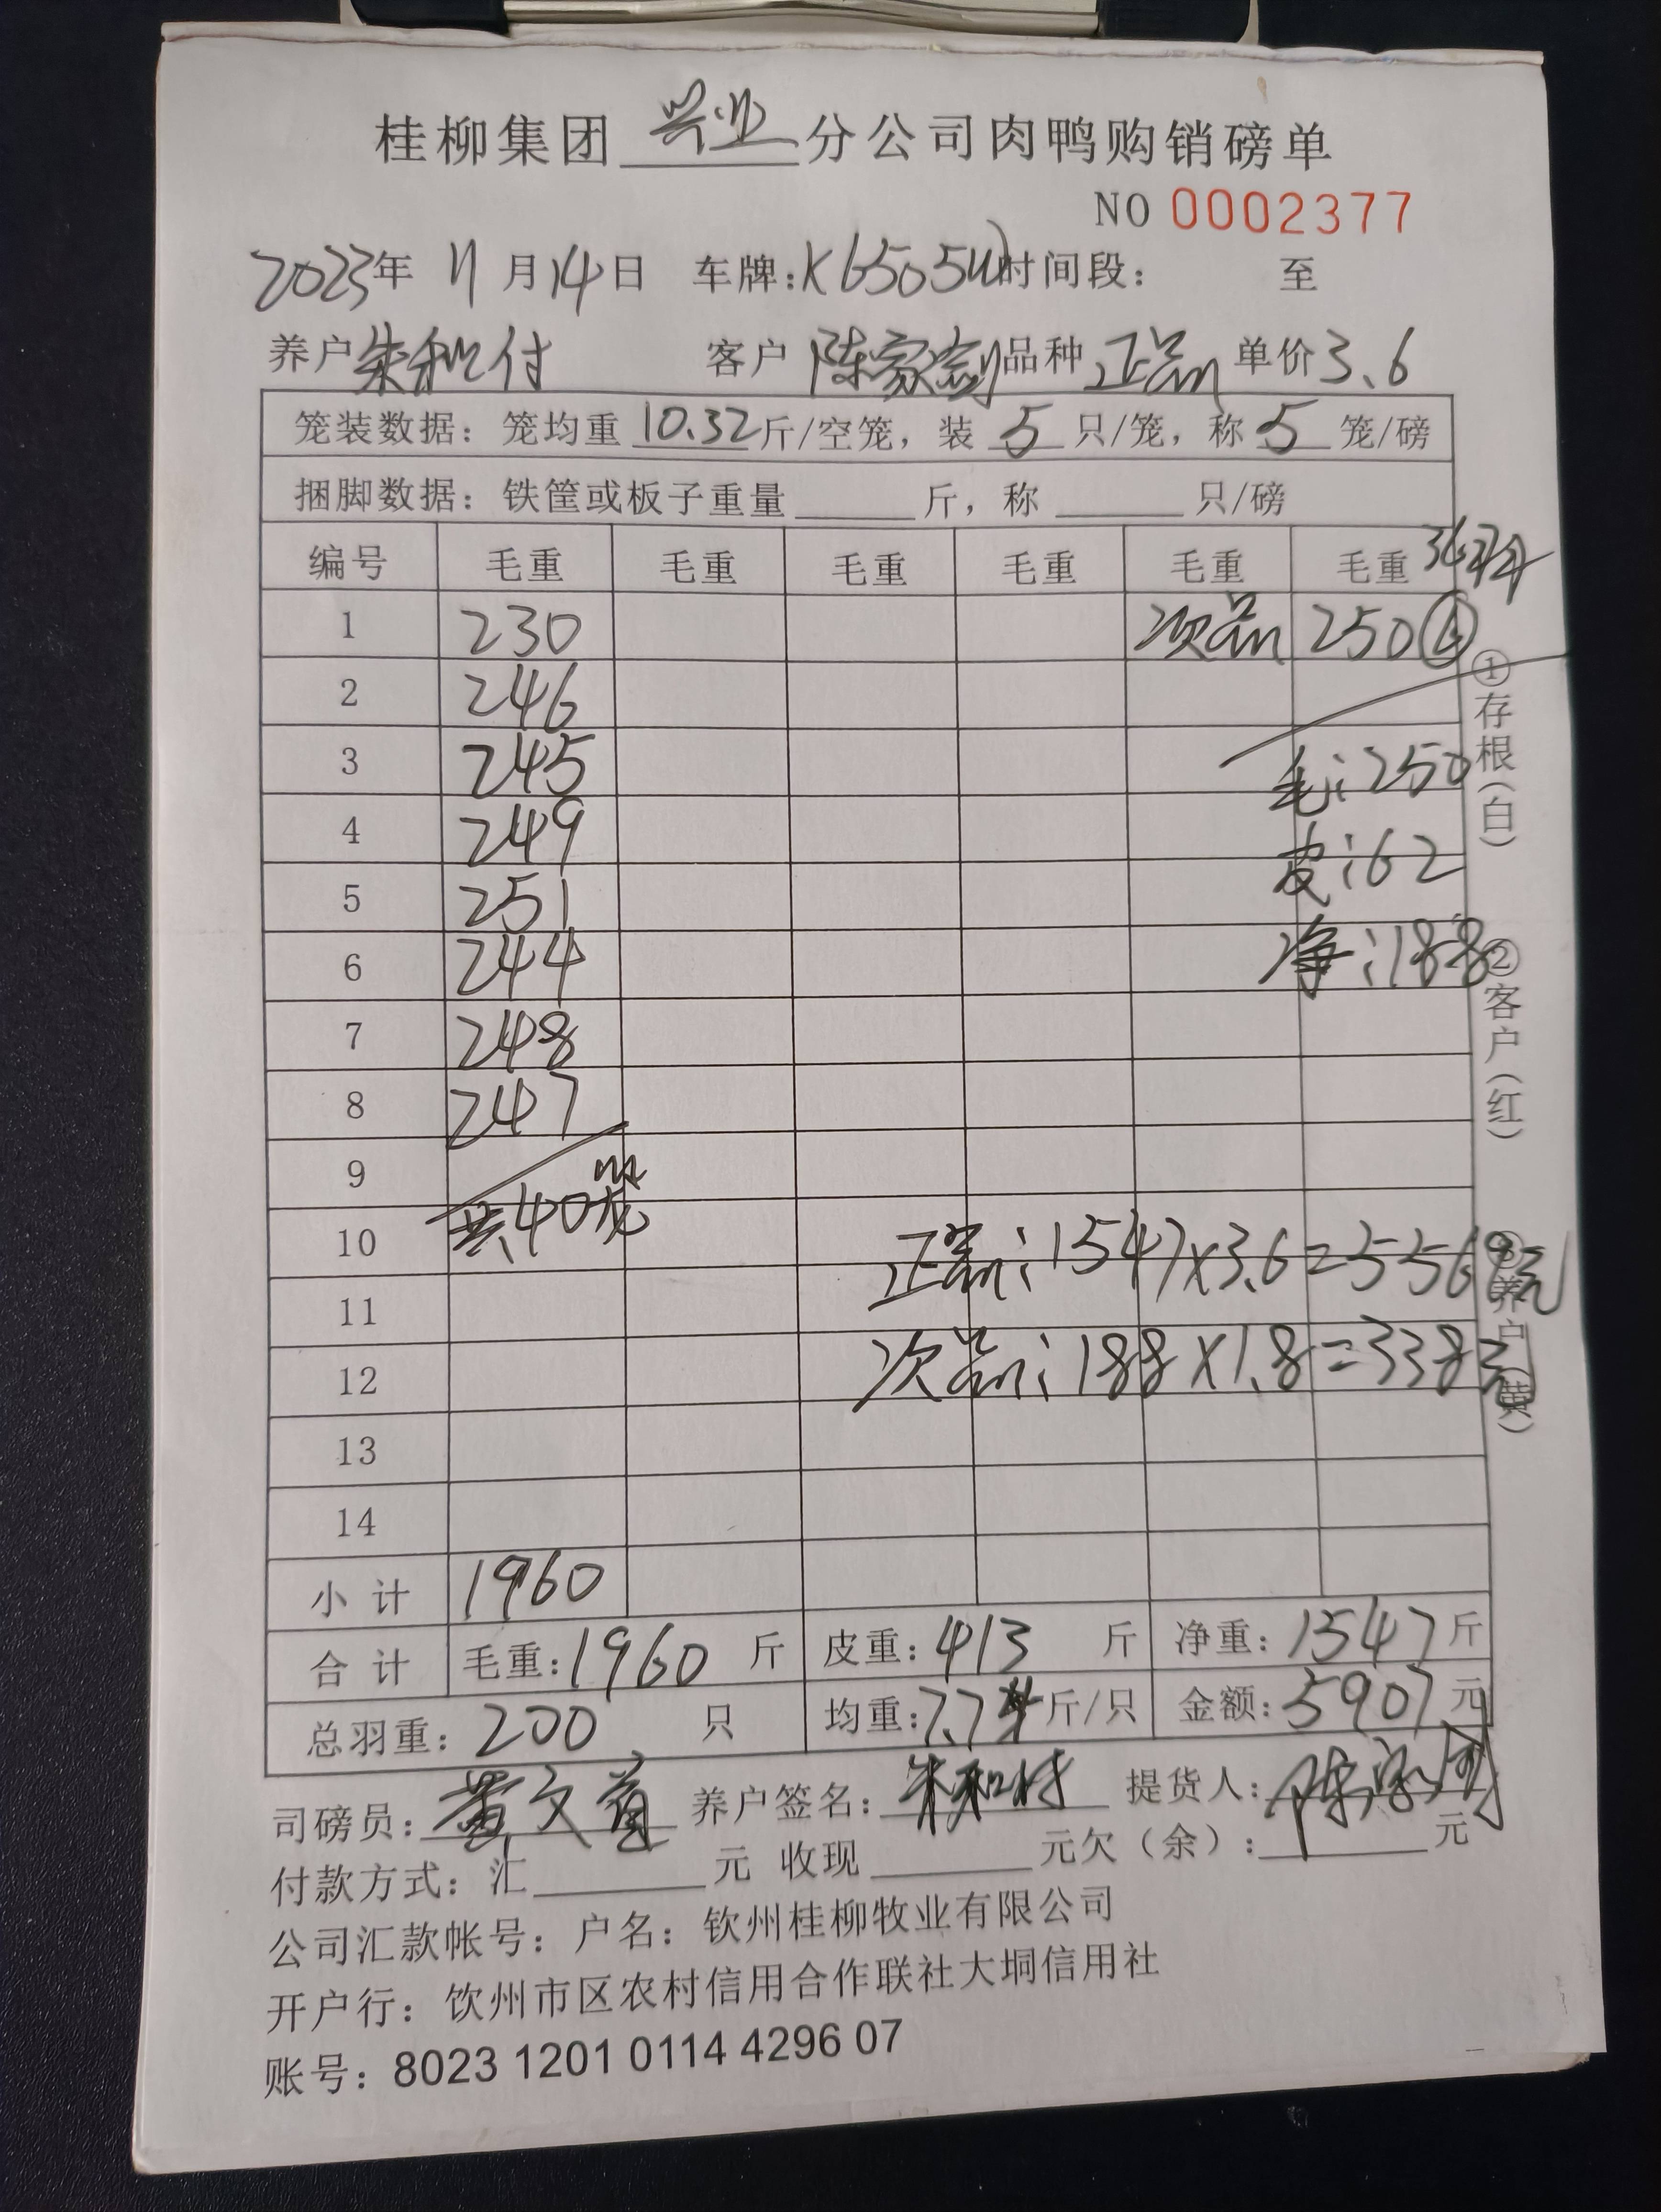 桂柳集团 兴业 分公司肉鸭购销磅单
NO 0002377
2023年 11月14日 车牌:K6505W 时间段: 至
养户 客户 陈家 品种 正品 单价 3.6
笼装数据: 笼均重 10.32 斤/空笼, 装 5 只/笼, 称 5 笼/磅
捆脚数据: 铁筐或板子重量 斤, 称 只/磅
编号 毛重 毛重 毛重 毛重 毛重 毛重
1 230 次品 250 ⑥
2 246
3 245 毛:250
4 249 皮:62
5 251
6 244 净:188
7 248
8 247
9
10 共40笼 正品:1547×3.6=5569元
11
12 次品:188×1.8=338元
13
14
小计 1960
合计 毛重:1960 斤 皮重:413 斤 净重:1547斤
总羽重:200 只 均重:7.74斤/只 金额:5907元
司磅员:黄文 养户签名: 提货人:陈家
付款方式: 汇 元 收现 元欠(余): 元
公司汇款帐号: 户名: 钦州桂柳牧业有限公司
开户行: 钦州市区农村信用合作联社大垌信用社
账号: 8023 1201 0114 4296 07
①存根(白)
②客户(红)
③养户(黄)